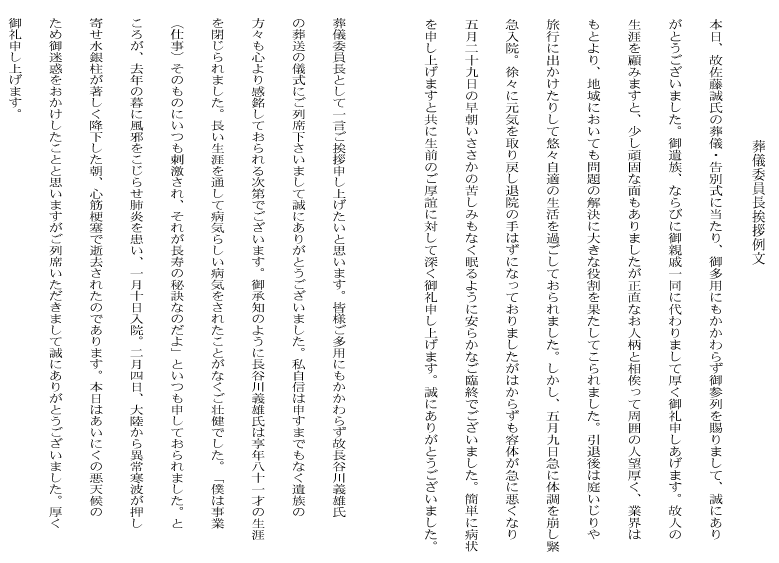 葬儀委員長挨拶例文
本日、故佐藤誠氏の葬儀・告別式に当たり、御多用にもかかわらず御参列を賜りまして、誠にあり
がとうございました。御遺族、ならびに御親戚一同に代わりまして厚く御礼申しあげます。故人の
生涯を顧みますと、少し頑固な面もありましたが正直なお人柄と相俟って周囲の人望厚く、業界は
もとより、地域においても問題の解決に大きな役割を果たしてこられました。引退後は庭いじりや
旅行に出かけたりして悠々自適の生活を過ごしておられました。しかし、五月九日急に体調を崩し緊
急入院。徐々に元気を取り戻し退院の手はずになっておりましたがはからずも容体が急に悪くなり
五月二十九日の早朝いささかの苦しみもなく眠るように安らかなご臨終でございました。簡単に病状
を申し上げますと共に生前のご厚誼に対して深く御礼申し上げます。誠にありがとうございました。
葬儀委員長として一言ご挨拶申し上げたいと思います。皆様ご多用にもかかわらず故長谷川義雄氏
の葬送の儀式にご列席下さいまして誠にありがとうございました。私自信は申すまでもなく遺族の
方々も心より感銘しておられる次第でございます。御承知のように長谷川義雄氏は享年八十一才の生涯
を閉じられました。長い生涯を通して病気らしい病気をされたことがなくご壮健でした。「僕は事業
（仕事）そのものにいつも刺激され、それが長寿の秘訣なのだよ」といつも申しておられました。と
ころが、去年の暮に風邪をこじらせ肺炎を患い、一月十日入院。二月四日、大陸から異常寒波が押し
寄せ水銀柱が著しく降下した朝、心筋梗塞で逝去されたのであります。本日はあいにくの悪天候の
ため御迷惑をおかけしたことと思いますがご列席いただきまして誠にありがとうございました。厚く
御礼申し上げます。